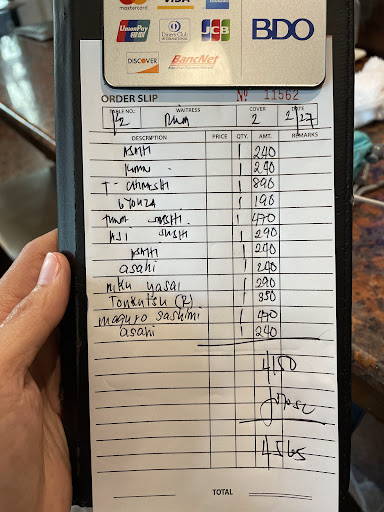 mastercard VISA
UnionPay Diners Club INTERNATIONAL JCB BDO
DISCOVER BancNet
ORDER SLIP Nº 11562
TABLE NO. WAITRESS COVER DATE
12 2 2/27
DESCRIPTION PRICE QTY. AMT. REMARKS
ASAHI 1 240
1 240
T- CHIRASHI 1 890
GYOUZA 1 190
TUNA SUSHI 1 470
AJI SUSHI 1 290
ASAHI 1 240
asahi 1 240
niku yasai 1 290
Tonkutsu (R) 1 350
maguro sashimi 1 470
asahi 1 240
4150
4565
TOTAL